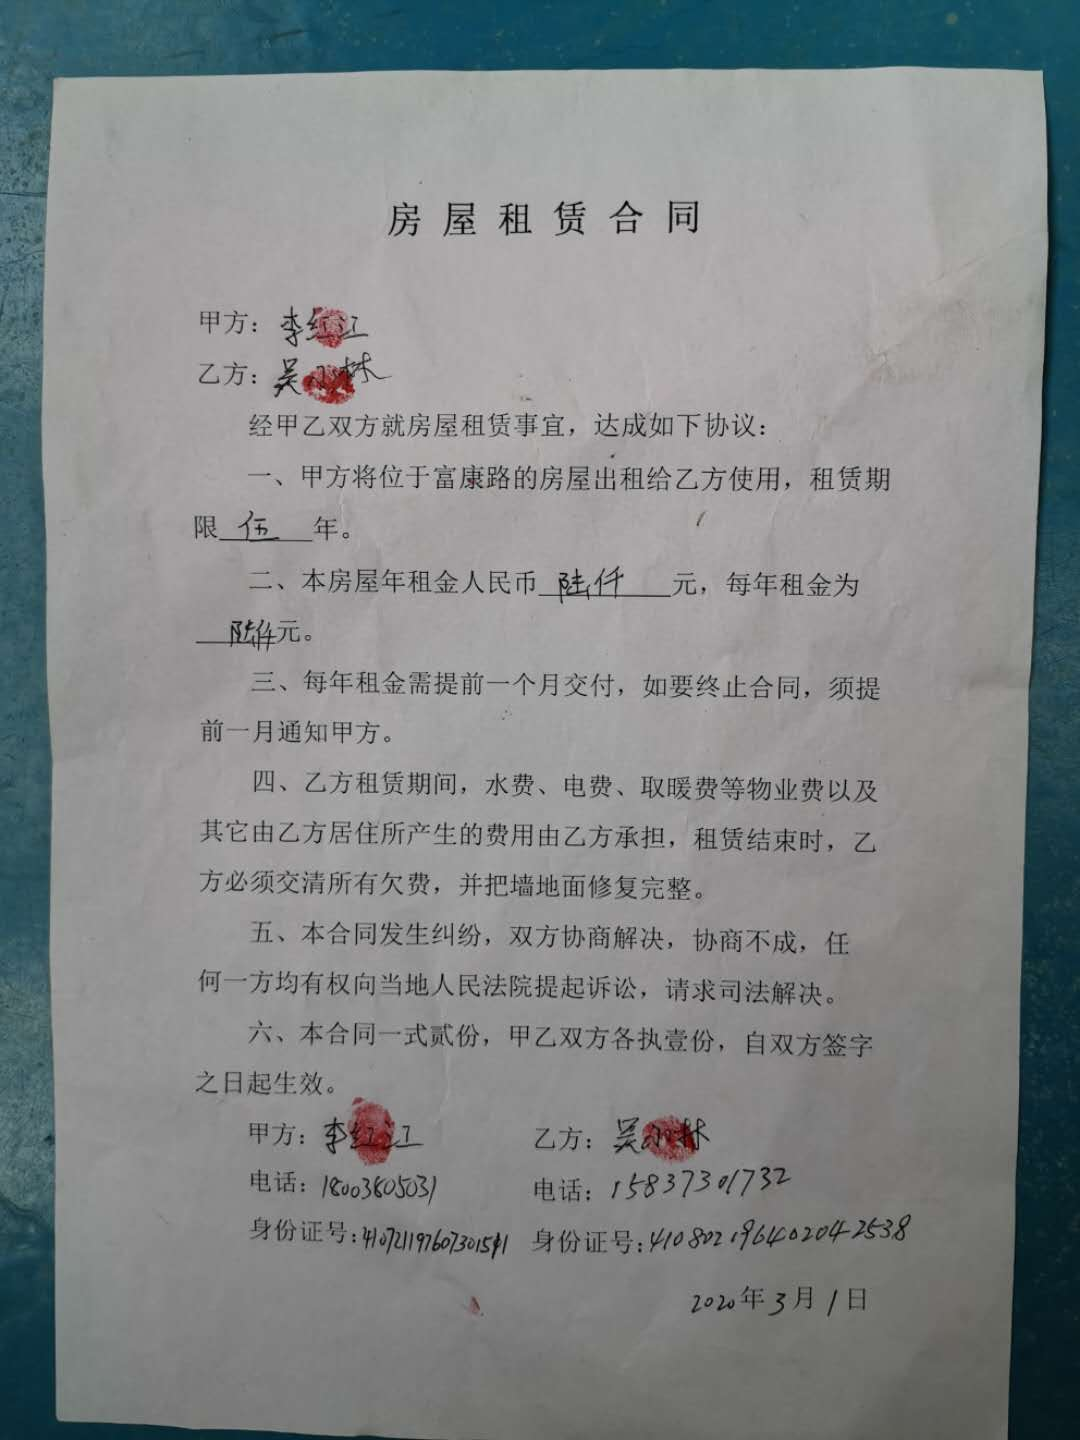 房屋租赁合同
甲方：李红江
乙方：吴小林
经甲乙双方就房屋租赁事宜，达成如下协议：
一、甲方将位于富康路的房屋出租给乙方使用，租赁期
限伍年。
二、本房屋年租金人民币陆仟元，每年租金为
陆仟元。
三、每年租金需提前一个月交付，如要终止合同，须提
前一月通知甲方。
四、乙方租赁期间，水费、电费、取暖费等物业费以及
其它由乙方居住所产生的费用由乙方承担，租赁结束时，乙
方必须交清所有欠费，并把墙地面修复完整。
五、本合同发生纠纷，双方协商解决，协商不成，任
何一方均有权向当地人民法院提起诉讼，请求司法解决。
六、本合同一式贰份，甲乙双方各执壹份，自双方签字
之日起生效。
甲方：李红江 乙方：吴小林
电话：18003805031 电话：15837301732
身份证号： 身份证号：410802196402042538
2020年3月1日